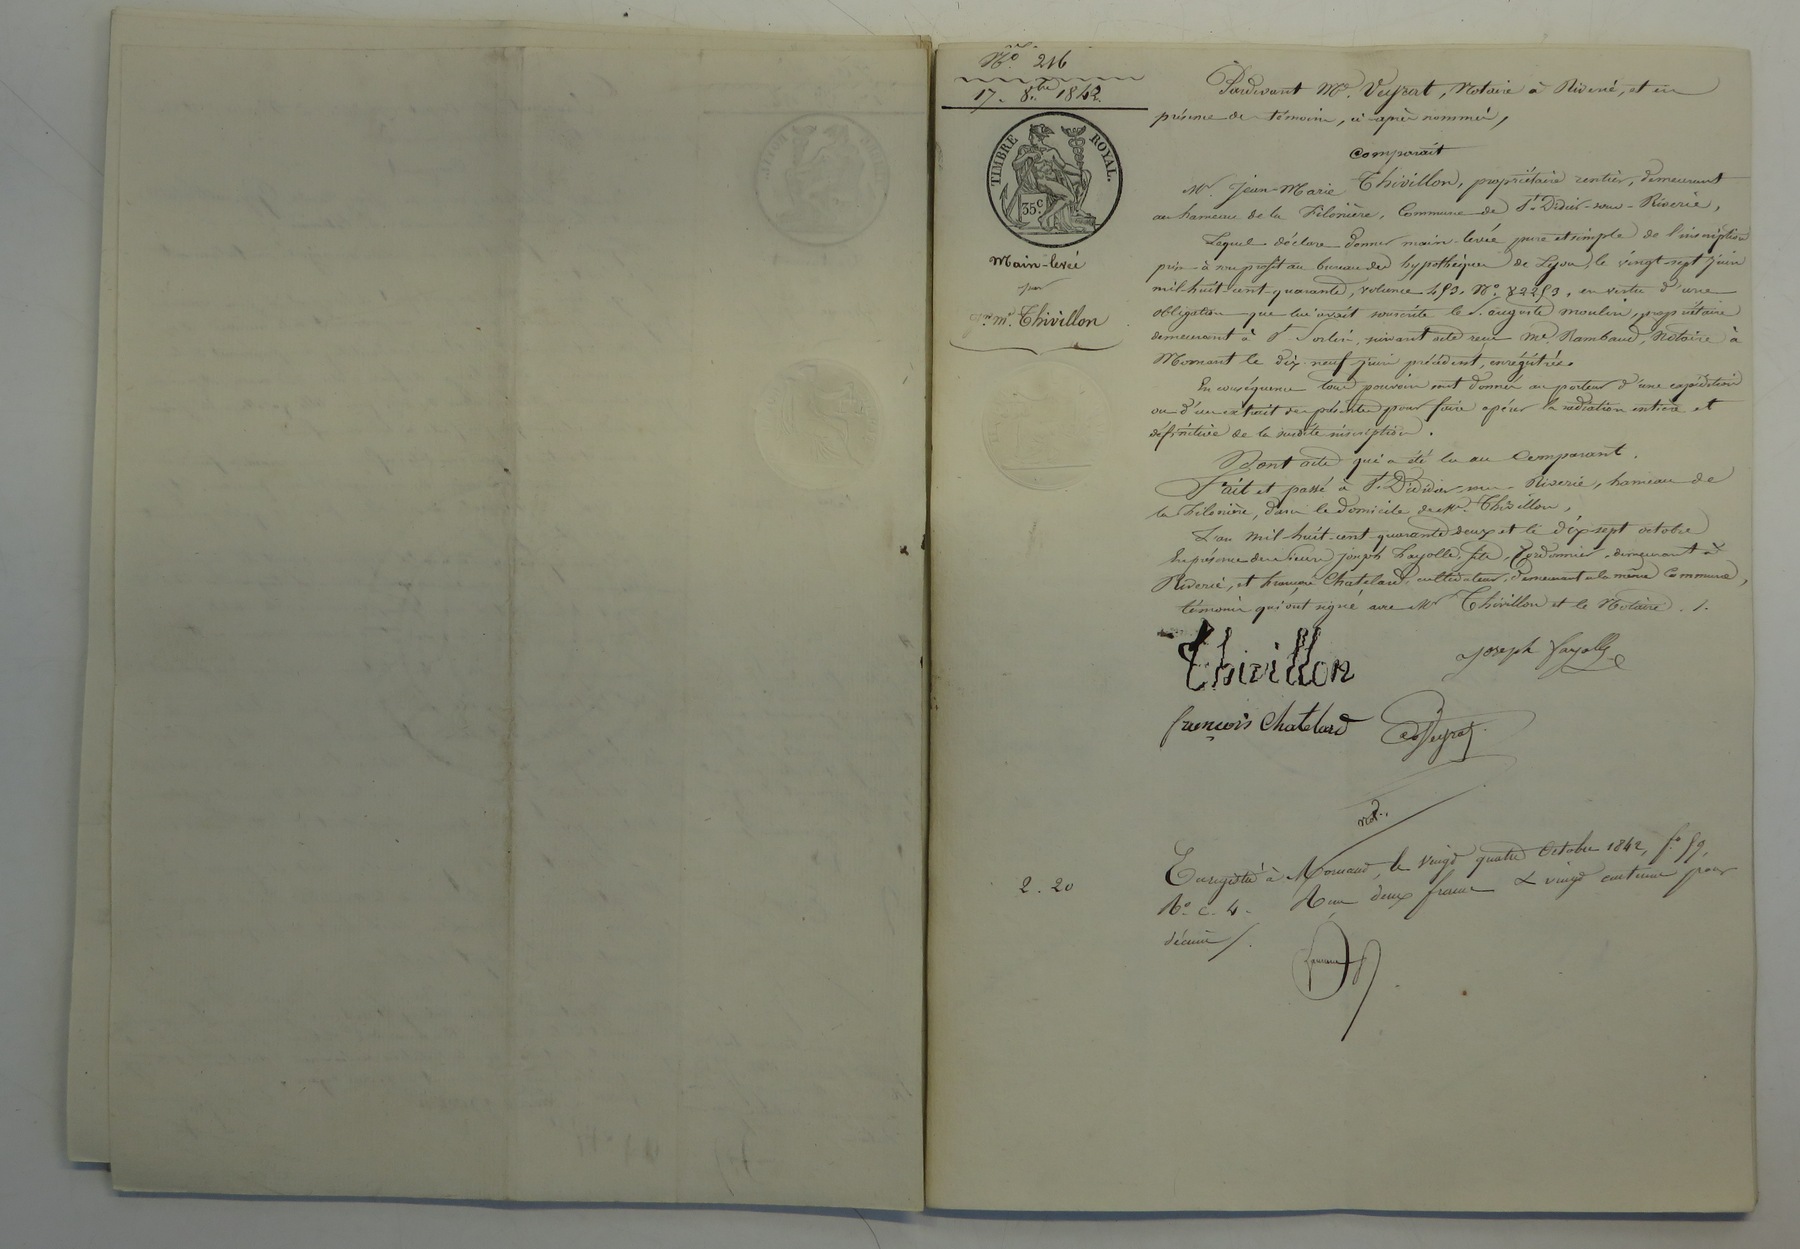 No. 216
17. 8.bre 1842.
TIMBRE ROYAL.
35 c.
Main-levée
par
Jn. Mie. Thivillon
Pardevant Me. Veyrat, Notaire à Riverie, et en
présence de témoins, ci-après nommés,
Comparait
Mr. Jean-Marie Thivillon, propriétaire rentier, demeurant
au hameau de la Filonière, Commune de St. Didier-sous-Riverie,
Lequel déclare donner main-levée pure et simple de l'inscription
prise à son profit au bureau des hypothèques de Lyon, le vingt-sept juin
mil-huit-cent-quarante, volume 493, No. 82253, en vertu d'une
obligation que lui avait souscrite le S. auguste moulin, propriétaire
demeurant à St Sorlin, suivant acte reçu Me. Rambaud, Notaire à
Mornant le dix-neuf juin précédent, enregistrée.
En conséquence tous pouvoirs sont donnés au porteur d'une expédition
ou d'un extrait des présentes pour faire opérer la radiation entière et
définitive de la susdite inscription.
Dont acte qui a été lu au Comparant.
Fait et passé à St. Didier-sous-Riverie, hameau de
la Filonière, dans le domicile de Mr. Thivillon,
L'an mil-huit-cent quarante deux et le dix-sept octobre
En présence des sieurs joseph Fayolle, fils, Cordonnier, demeurant à
Riverie, et françois Chatelard, cultivateur, demeurant en la même Commune,
témoins qui ont signé avec Mr Thivillon et le Notaire. /.
Thivillon
Joseph Fayolle
françois Chatelard
Veyrat
not.
Enregistré à Mornant, le vingt quatre Octobre 1842, fo. 59,
2. 20
No. c. 4. Reçu deux francs & vingt centimes pour
décime /.